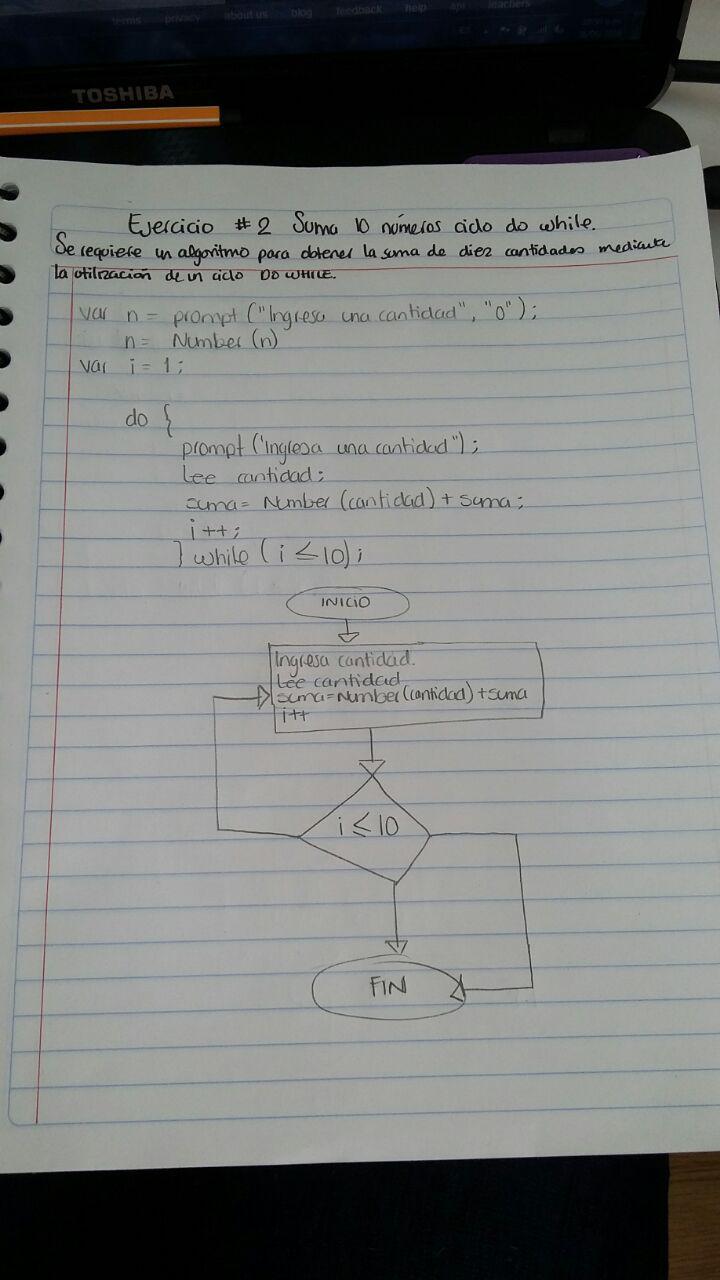 terms privacy about us blog feedback help api teachers
TOSHIBA
Ejercicio #2 Suma 10 números ciclo do while.
Se requiere un algoritmo para obtener la suma de diez cantidades mediante
la utilización de un ciclo DO WHILE.
var n = prompt ("Ingresa una cantidad", "0");
n = Number (n)
var i = 1;
do {
prompt ("Ingresa una cantidad");
Lee cantidad;
suma = Number (cantidad) + suma;
i ++;
} while ( i ≤ 10);
INICIO
Ingresa cantidad.
Lee cantidad
suma=Number(cantidad)+suma
i++
i ≤ 10
FIN